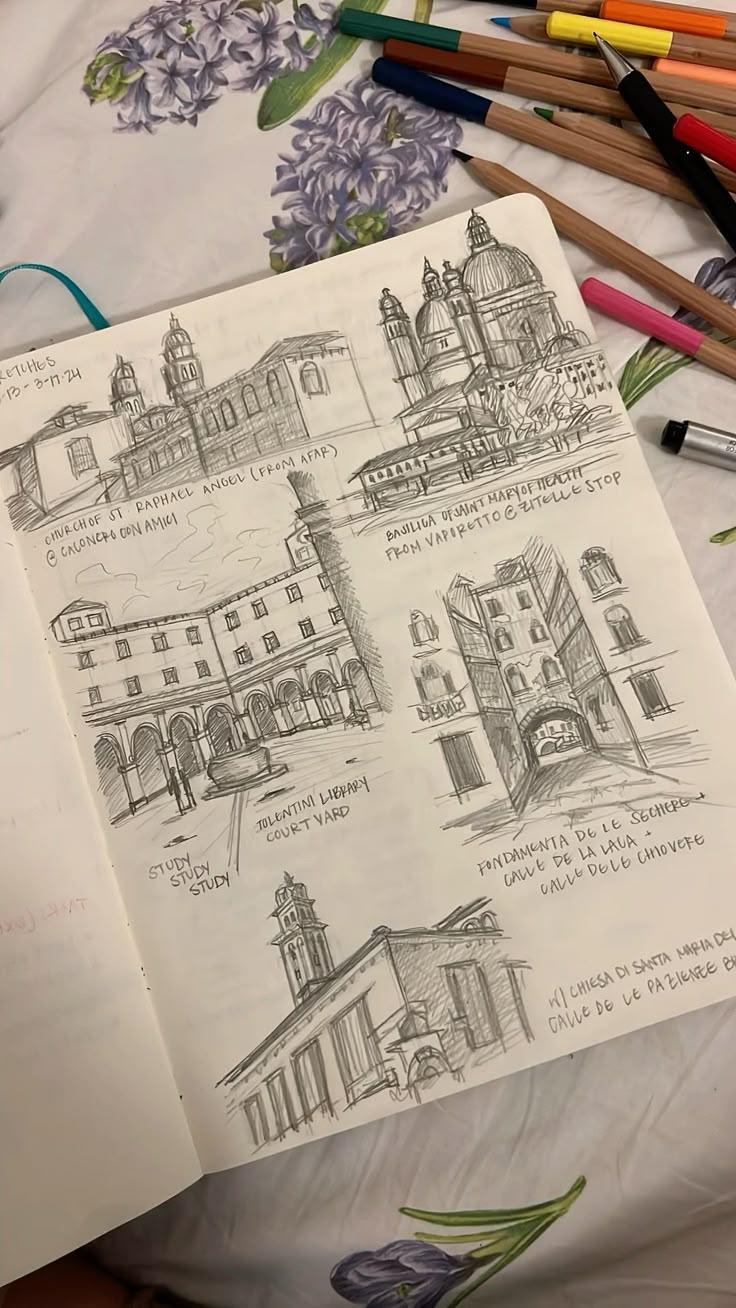 KETCHES
-13 - 3-17-24
CHURCH OF ST. RAPHAEL ANGEL (FROM AFAR)
@ CALONERO CON AMICI
BASILICA OF SAINT MARY OF HEALTH
FROM VAPORETTO @ ZITELLE STOP
TOLENTINI LIBRARY
COURTYARD
STUDY
STUDY
STUDY
FONDAMENTA DE LE SECHERE +
CALLE DE LA LACA +
CALLE DE LE CHIOVERE
W/ CHIESA DI SANTA MARIA DEL
CALLE DE LE PAZIENZE